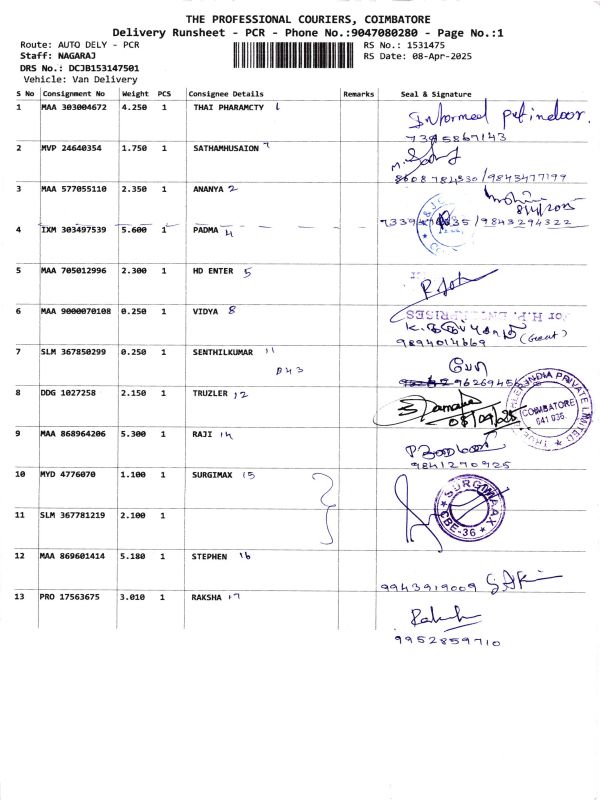 THE PROFESSIONAL COURIERS, COIMBATORE
Delivery Runsheet - PCR - Phone No.:9047080280 - Page No.:1
Route: AUTO DELY - PCR
RS No.: 1531475
Staff: NAGARAJ
RS Date: 08-Apr-2025
DRS No.: DCJB153147501
Vehicle: Van Delivery
S No Consignment No Weight PCS Consignee Details Remarks Seal & Signature
1 MAA 303004672 4.250 1 THAI PHARAMCTY 1 Informed
7395867143
2 MVP 24640354 1.750 1 SATHAMHUSAION
8608784330/9843477199
3 MAA 577055110 2.350 1 ANANYA 2
8/4/2025
/9843294322
4 IXM 303497539 5.600 1 PADMA 4
5 MAA 705012996 2.300 1 HD ENTER 5
For H.P. ENTERPRISES
6 MAA 9000070108 0.250 1 VIDYA 8
(Guest)
9894014669
7 SLM 367850299 0.250 1 SENTHILKUMAR 11
043
8 DDG 1027258 2.150 1 TRUZLER 12
INDIA PRIVATE LIMITED
COIMBATORE
641 035
9 MAA 868964206 5.300 1 RAJI 14
9841270925
10 MYD 4776070 1.100 1 SURGIMAX 15
SURGIMAAX
CBE-36
11 SLM 367781219 2.100 1
12 MAA 869601414 5.180 1 STEPHEN 16
9943919009
13 PRO 17563675 3.010 1 RAKSHA 17
9952859710